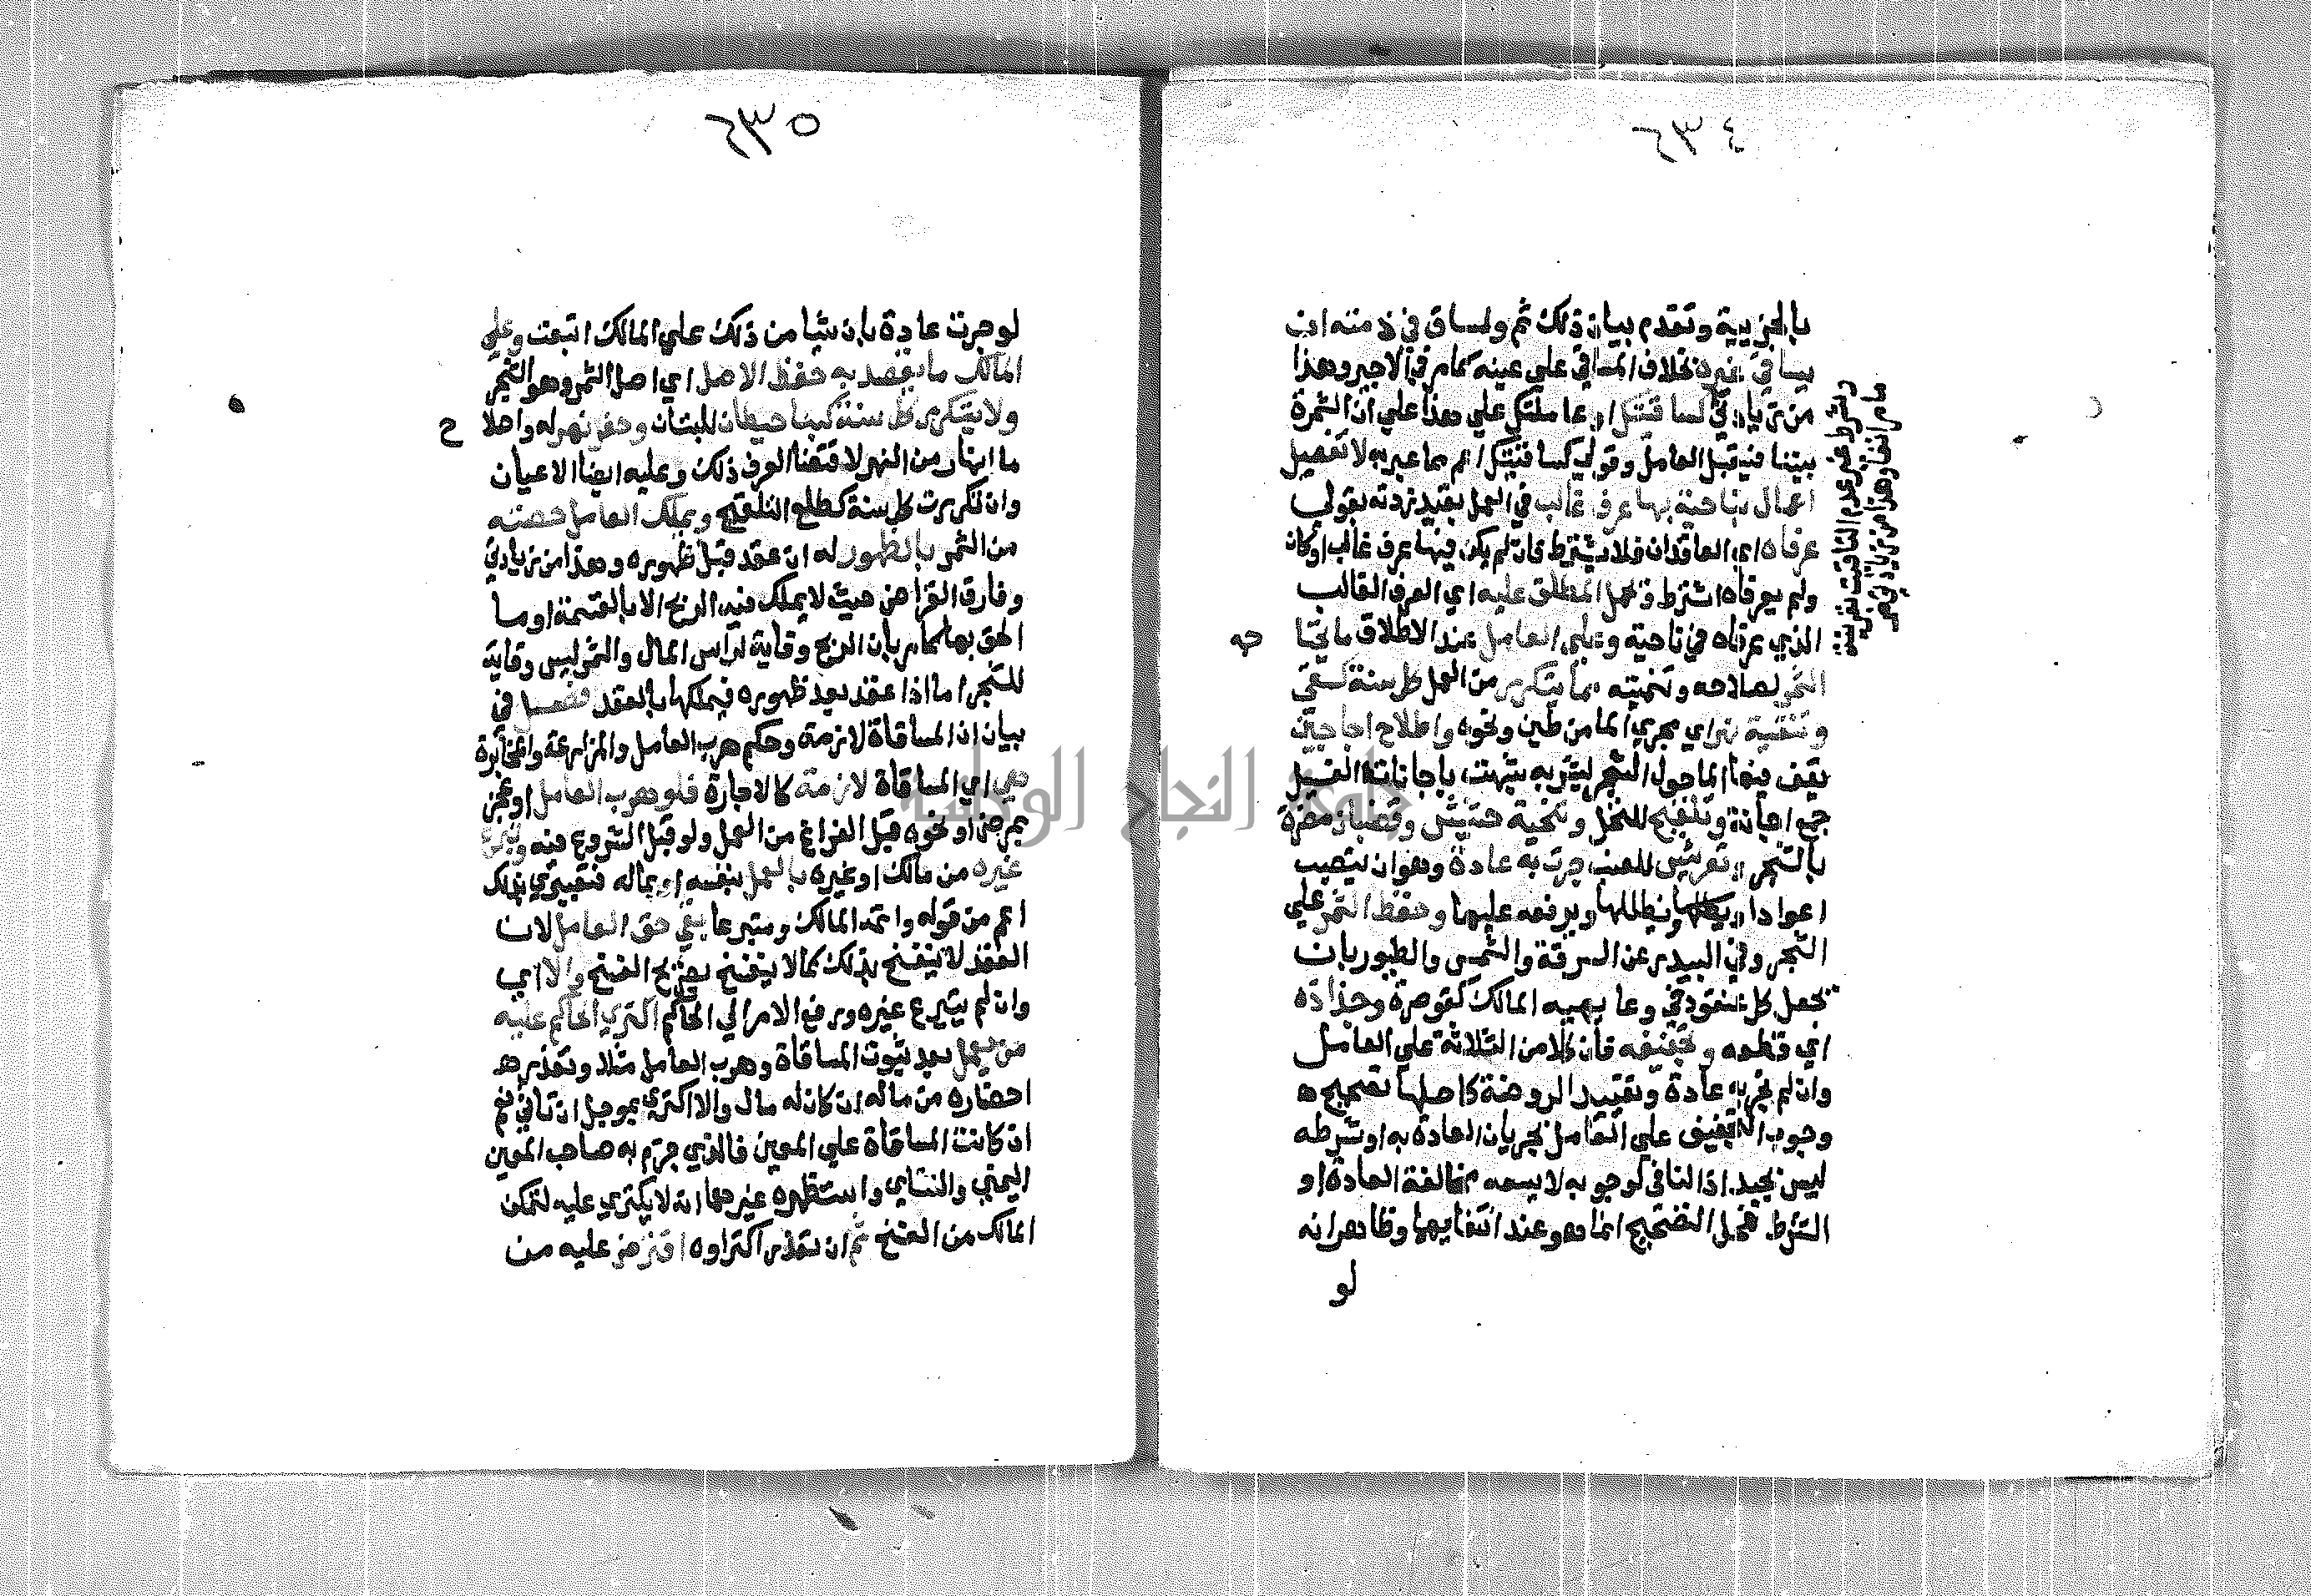 ٦٣٤
بالجزيية وتقدم بيان ذلك ثم ولمساق في ذمته ان
يساقي غيره بخلاف المساقي علي عينه كما مر في الاجير وهذا
من زيادتي كساقيتك او عاملتك علي هذا علي ان الثمرة
بيننا فيقبل العامل وقولي كساقيتك اعم مما عبر به لا تفصيل
اعمال بناحية بها عرف غالب في العمل بقيد زدته بقولي
عرفاه اي العاقدان فلا يشترط فان لم يكن فيها عرف غالب او كان
ولم يعرفاه اشترط ويحمل المطلق عليه اي العرف الغالب
الذي عرفاه في ناحية وعلي العامل عند الاطلاق ما يحتاجه
الثمر لصلاحه وتنميته مما يتكرر من العمل كل سنة كسقي
وتنقية نهر اي مجري الما من طين ونحوه واصلاح اجاجين
يقف فيها الما حول الشجر ليشربه شبهت باجانات الغسيل
جمع اجانة وتلقيح للنخل وتنحية حشيش وقضبان مضرة
بالشجر وتعريش للعنب جرت به عادة وهو ان ينصب
اعوادا ويظللها ويرفعه عليها وحفظ الثمر علي
الشجر وفي البيدر عن السرقة والشمس والطيور بان
يجعل كل عنقود في وعا يهييه المالك كقوصرة وجذاذه
اي قطعه وتجفيفه فان كلا من الثلاثة علي العامل
وان لم تجر به عادة وتقييد الروضة كاصلها تصحيح
وجوب التجفيف علي العامل بجريان العادة به او شرطه
ليس بجيد اذ النافي لوجوبه لا يسعه مخالفة العادة او
الشرط فمحل التصحيح انما هو عند انتفايهما وظاهر انه
لو
ما مر انفا وهذا من زيادتي
وشرط غيره عدم التاقيت
٦٣٥
لو جرت عادة بان شيا من ذلك علي المالك اتبعت وعلي
المالك ما يقصد به حفظ الاصل اي اصل الثمر وهو الشجر
ولا يتكرر كل سنة كبنا حيطان للبستان وحفر نهر له واصلاح
ما انهار من النهر لاقتضا العرف ذلك وعليه ايضا الاعيان
وان تكررت كل سنة كطلع التلقيح ويملك العامل حصته
من الثمر بالظهور له ان عقد قبل ظهوره وهذا من زيادتي
وفارق القراض حيث لا يملك فيه الربح الا بالقسمة او ما
الحق بها كما مر بان الربح وقاية لراس المال والثمر ليس وقاية
للشجر اما اذا عقد بعد ظهوره فيملكها بالعقد فصل في
بيان ان المساقاة لازمة وحكم هرب العامل والمزارعة والمخابرة
هي اي المساقاة لازمة كالاجارة فلو هرب العامل او عجز
بمرض او نحوه قبل الفراغ من العمل ولو قبل الشروع فيه وتبرع
غيره من مالك او غيره بالعمل بنفسه او بماله فتعبيري بذلك
اعم من قوله واتمه المالك متبرعا بقي حق العامل لان
العقد لا ينفسخ بذلك كما لا ينفسخ بصريح الفسخ والا اي
وان لم يتبرع غيره ورفع الامر الي الحاكم اكتري الحاكم عليه
من يعمل بعد ثبوت المساقاة وهرب العامل مثلا وتعذر
احضاره من ماله ان كان له مال والا اكتري بموجل ان تاتي نعم
ان كانت المساقاة علي العين فالذي جزم به صاحب المعين
اليمني والنشاي واستظهره غيرهما انه لا يكتري عليه لتمكن
المالك من الفسخ ثم ان تعذر اكتراوه اقترض عليه من
جامعة النجاح الوطنية